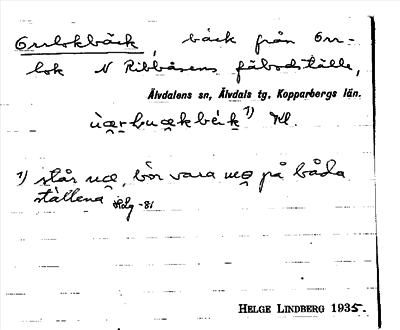 Orrlokbäck, bäck från Orr-
lok N Ribbåsens fäbodställe,
Älvdalens sn, Älvdals tg. Kopparbergs län.
1) står uo̯, bör vara uo̯ på båda
ställena Hdg -81
HELGE LINDBERG 1935.